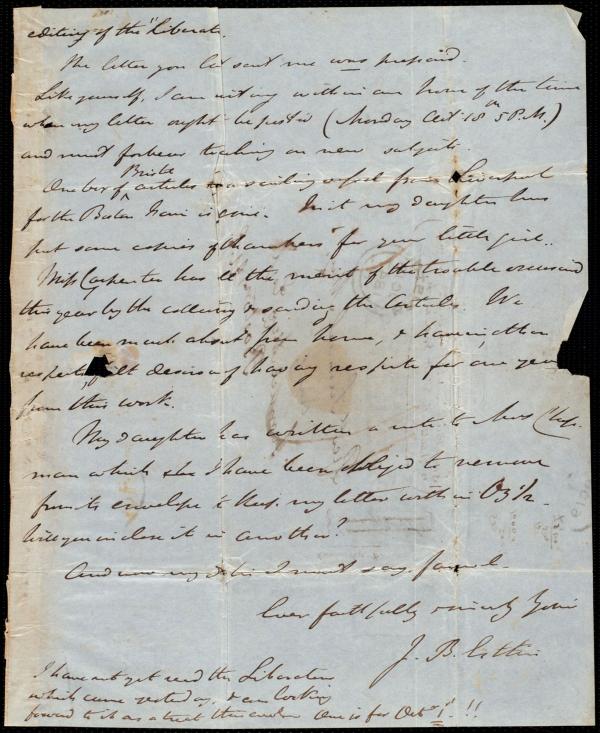 editing of the "Liberator.
The letter you last sent me was prepaid.
Like yourself, I am writing within an hour of the time
when my letter ought be posted (Monday Oct. 18th 5 P.M.)
and must forbear touching on new subjects.
One box of Bristol articles in a sailing vessel from Liverpool
for the Boston Fair is gone. In it my daughter has
put some copies of "Chambers" for your little girl.
Miss Carpenter has all the merit of the trouble occasioned
this year by the collecting & sending the articles. We
have been much absent from home, & have in other
respects felt desirous of having respite for one year
from this work.
My daughter has written a note to Mrs Chap-
man which she & I have been obliged to remove
from its envelope to keep my letter within Oz 1/2.
Will you enclose it in another?
And now my I must say farewell.
Ever faithfully & sincerely Yours
J. B. Estlin
I have not yet read the Liberator
which came yesterday, & am looking
forward to it as a treat this One is for Oct. 1st!!